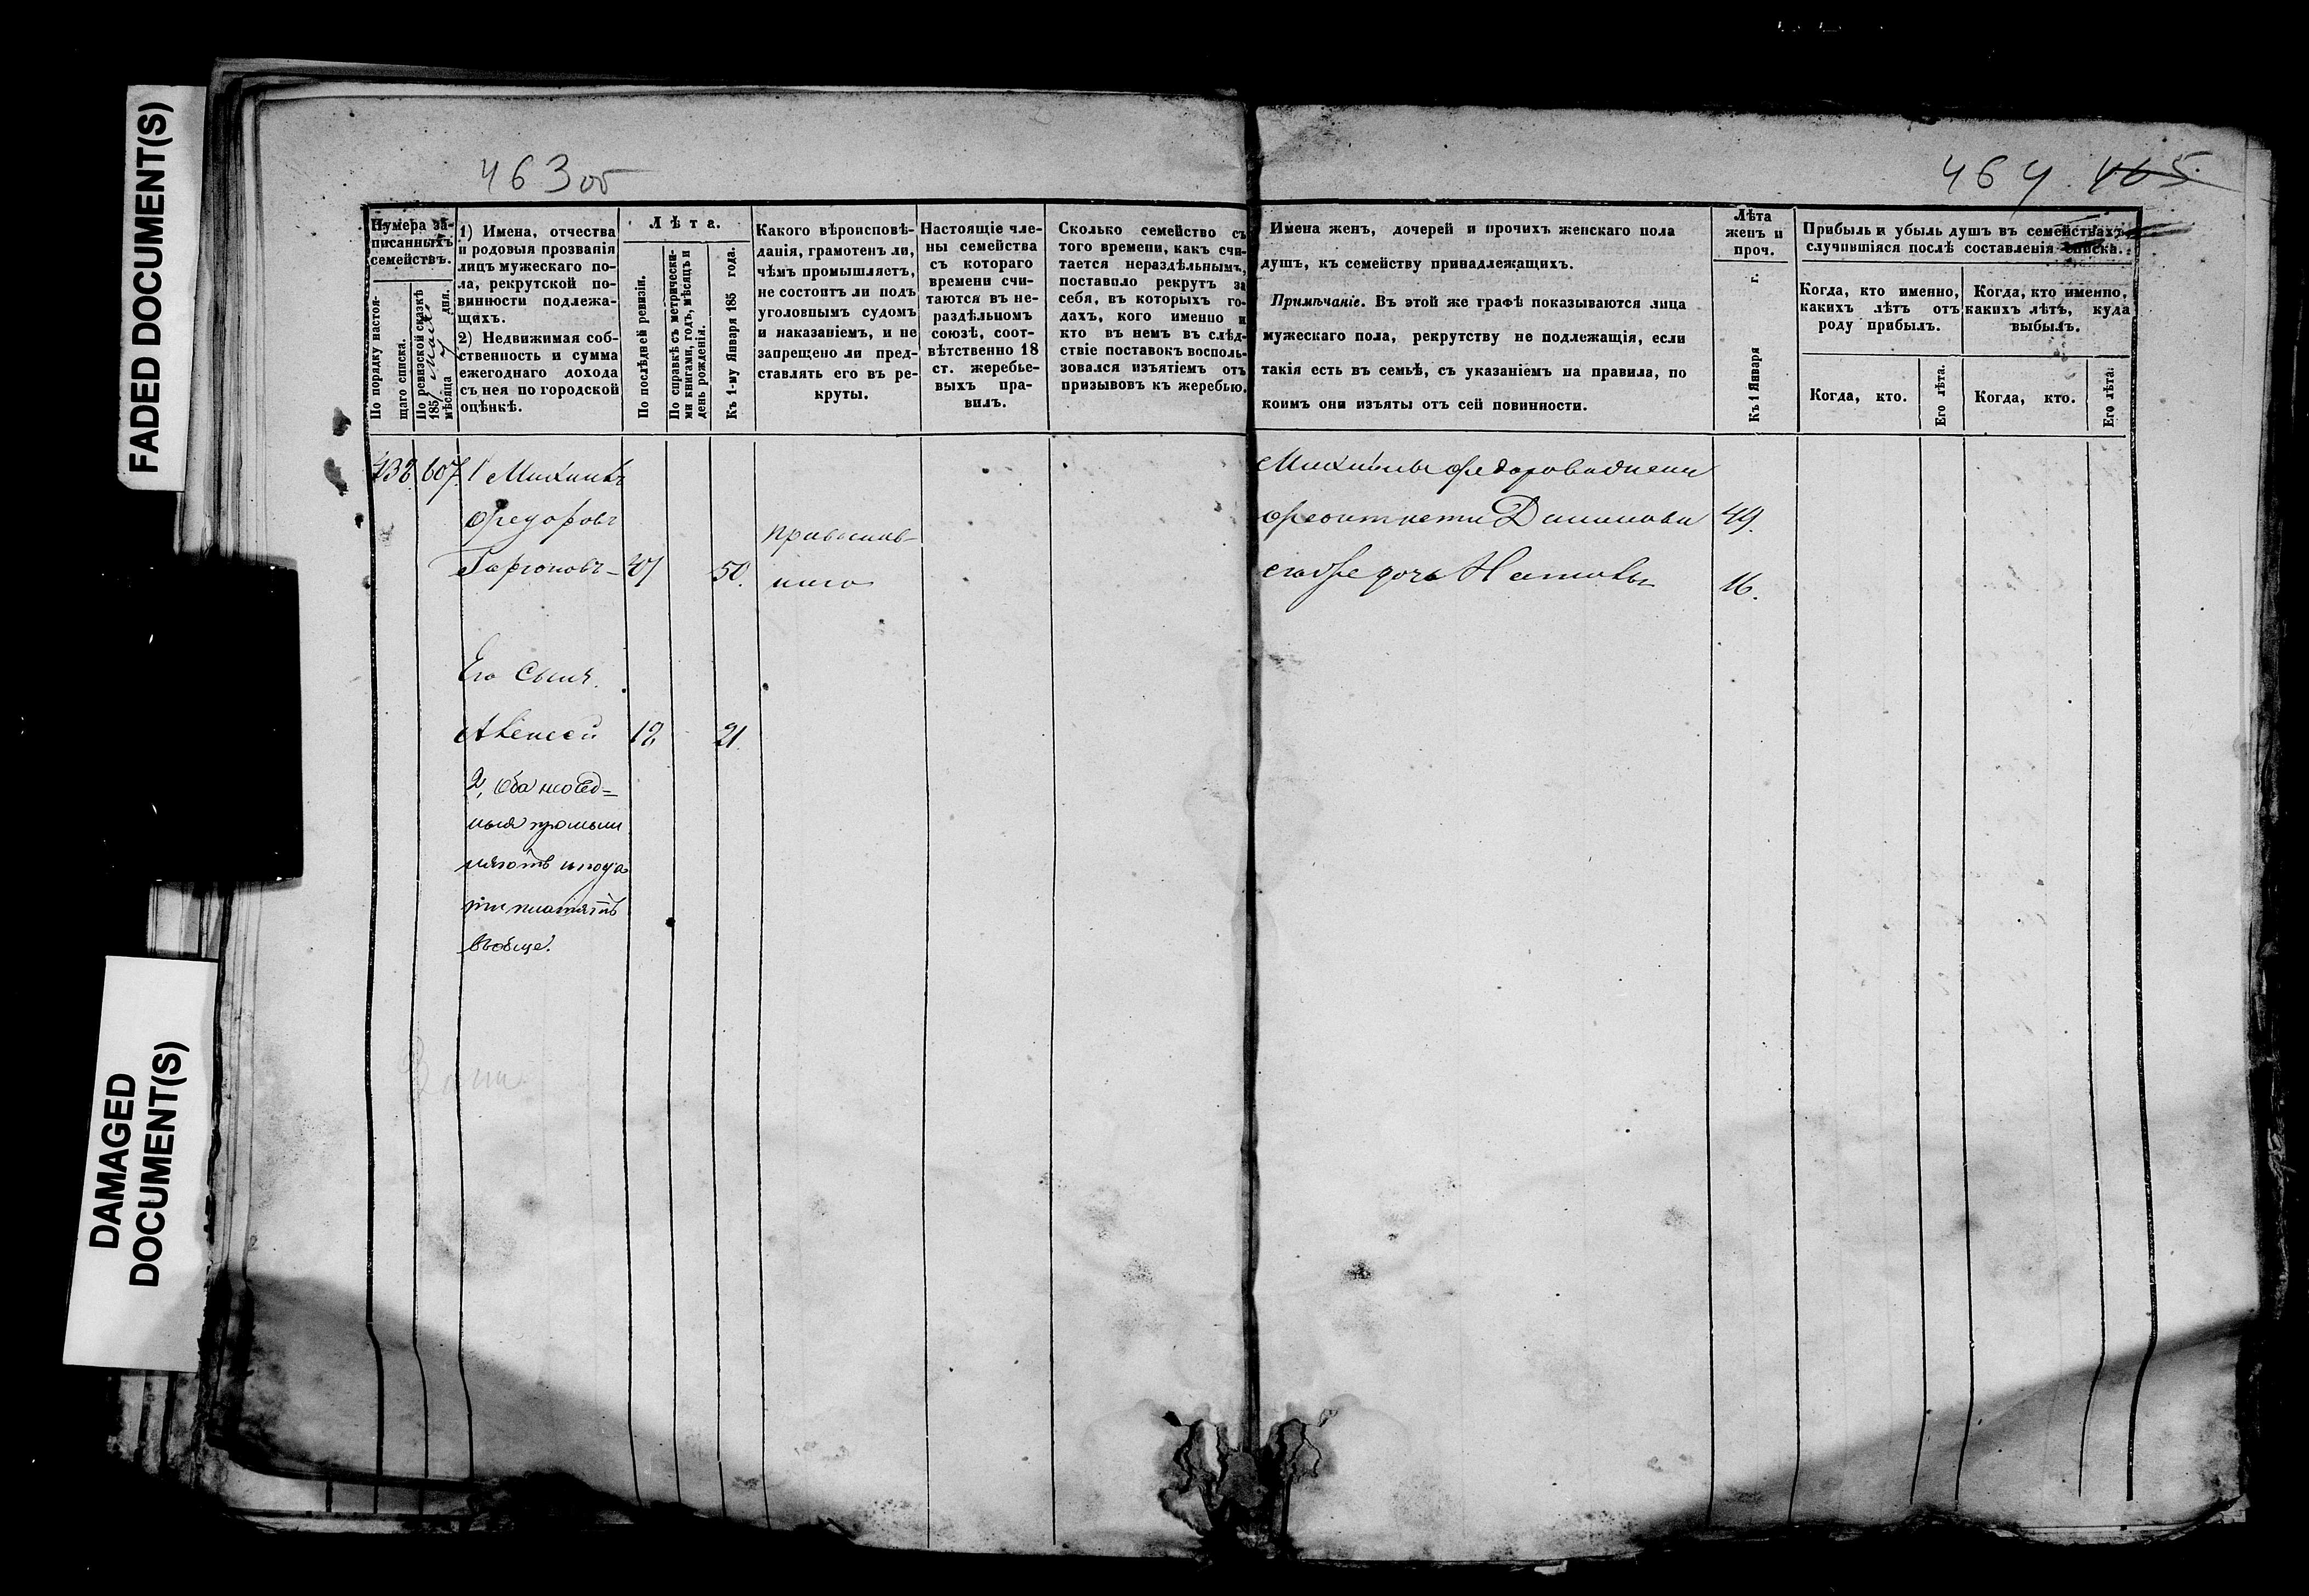 FADED DOCUMENT(S)
DAMAGED
DOCUMENT(S)
463 об
464 465
Нумера за-
писанныхъ
семействъ.
По порядку настоя-
щаго списка.
По ревизской сказкѣ
185 мѣсяца дня.
1) Имена, отчества
и родовыя прозванія
лицъ мужескаго по-
ла, рекрутской по-
винности подлежа-
щихъ.
2) Недвижимая соб-
ственность и сумма
ежегоднаго дохода
съ нея по городской
оцѣнкѣ.
Лѣта.
По послѣдней ревизіи.
По справкѣ съ метрически-
ми книгами, годъ, мѣсяцъ и
день рожденія.
Къ 1-му Января 185 года.
Какого вѣроисповѣ-
данія, грамотенъ ли,
чѣмъ промышляетъ,
не состоитъ ли подъ
уголовнымъ судомъ
и наказаніемъ, и не
запрещено ли пред-
ставлять его въ ре-
круты.
Настоящіе чле-
ны семейства
съ котораго
времени счи-
таются въ не-
раздѣльномъ
союзѣ, соот-
вѣтственно 18
ст. жеребье-
выхъ пра-
вилъ.
Сколько семейство съ
того времени, какъ счи-
тается нераздѣльнымъ,
поставило рекрутъ за
себя, въ которыхъ го-
дахъ, кого именно и
кто въ немъ въ слѣд-
ствіе поставокъ восполь-
зовался изъятіемъ отъ
призывовъ къ жеребью.
Имена женъ, дочерей и прочихъ женскаго пола
душъ, къ семейству принадлежащихъ.
Примѣчаніе. Въ этой же графѣ показываются лица
мужескаго пола, рекрутству не подлежащія, если
такія есть въ семьѣ, съ указаніемъ на правила, по
коимъ они изъяты отъ сей повинности.
Лѣта
женъ и
проч.
Къ 1 Января г.
Прибыль и убыль душъ въ семействахъ,
случившіяся послѣ составленія списка.
Когда, кто именно,
какихъ лѣтъ отъ
роду прибылъ.
Когда, кто именно,
какихъ лѣтъ, куда
выбылъ.
Когда, кто.
Его лѣта.
Когда, кто.
Его лѣта.
432. 607. 1
Федоровъ
47 50.
православ
наго
Его Сынъ.
Алексей 12 21.
2, Оба
промыш
ляютъ и пода
ти платятъ
вообще.
Федорова жена
49.
дочь 16.